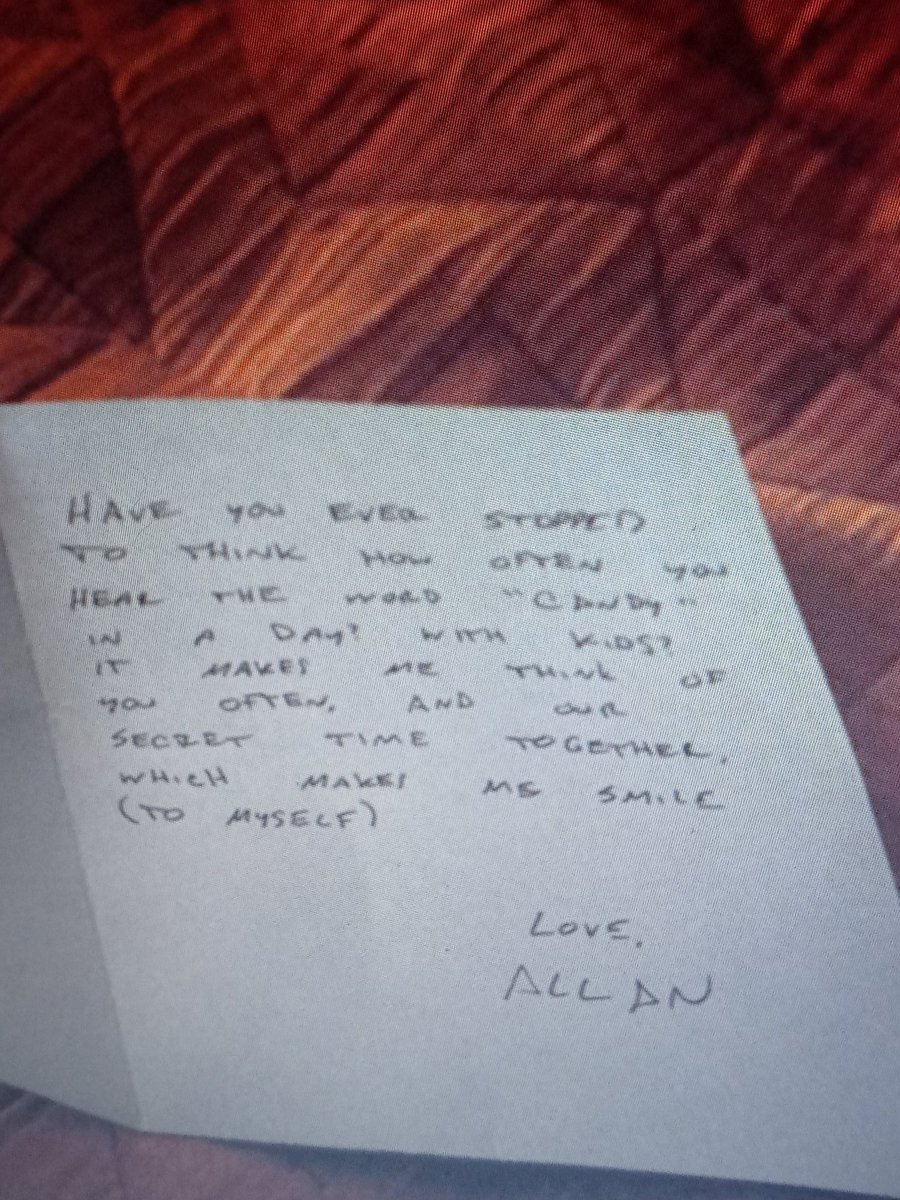 HAVE YOU EVER STOPPED
TO THINK HOW OFTEN YOU
HEAR THE WORD "CANDY"
IN A DAY? WITH KIDS?
IT MAKES ME THINK OF
YOU OFTEN, AND OUR
SECRET TIME TOGETHER,
WHICH MAKES ME SMILE
(TO MYSELF)
LOVE,
ALLAN